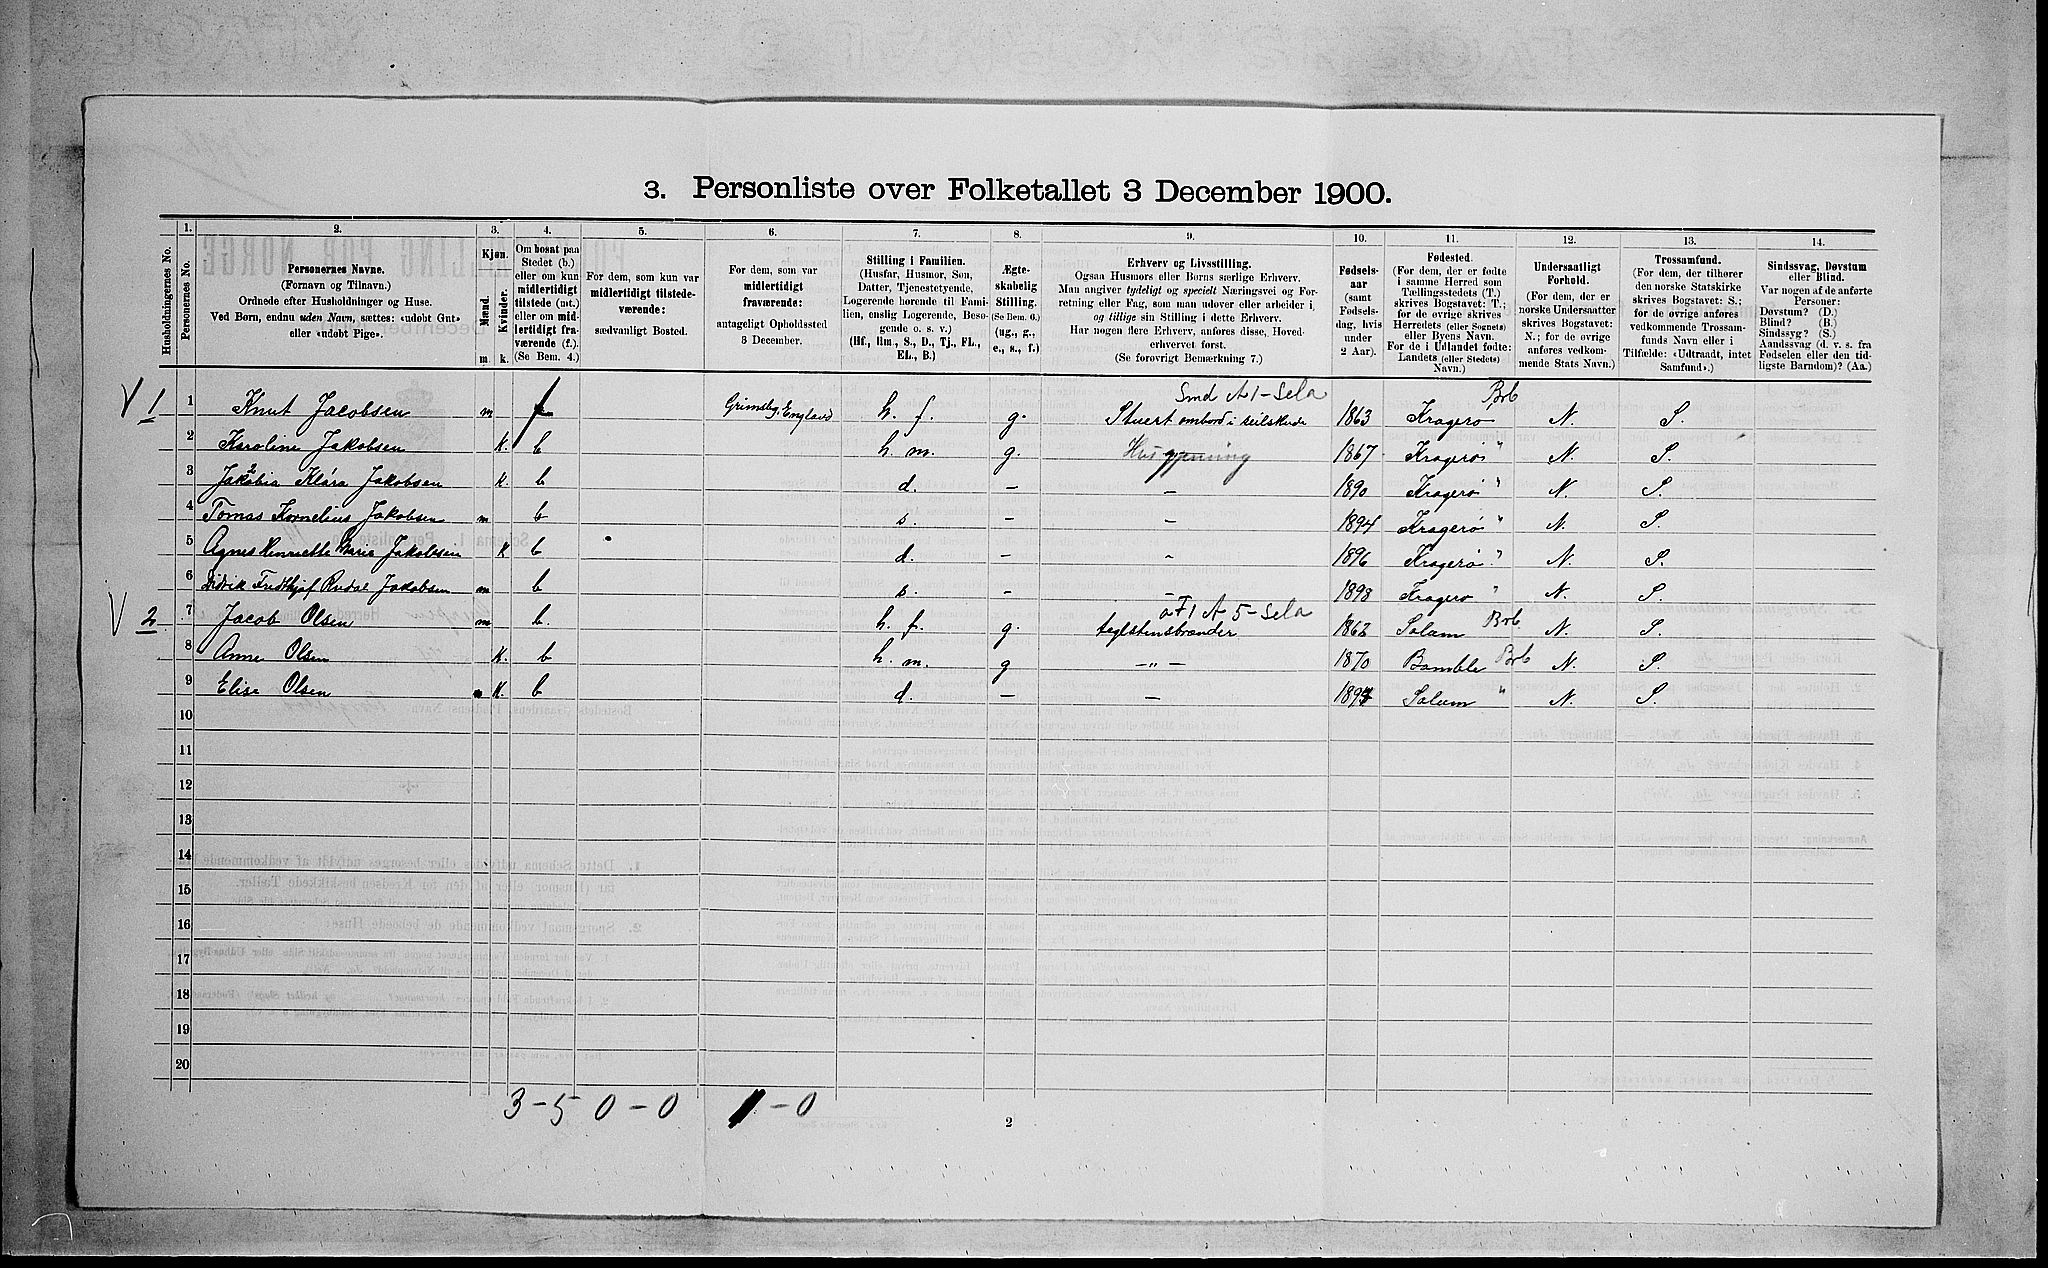 3. Personliste over Folketallet 3 December 1900.
Husholdningernes No.
1.
Personernes No.
2.
Personernes Navne.
(Fornavn og Tilnavn.)
Ordnede efter Husholdninger og Huse.
Ved Børn, endnu uden Navn, sættes: «udøbt Gut»
eller «udøbt Pige».
3.
Kjøn.
Mænd.
Kvinder.
m.
k.
4.
Om bosat paa
Stedet (b.)
eller om kun
midlertidigt
tilstede (mt.)
eller om mid-
lertidigt fra-
værende (f.).
(Se Bem. 4.)
5.
For dem, som kun var
midlertidigt tilstede-
værende:
sædvanligt Bosted.
6.
For dem, som var
midlertidigt
fraværende:
antageligt Opholdssted
3 December.
7.
Stilling i Familien.
(Husfar, Husmor, Søn,
Datter, Tjenestetyende,
Logerende hørende til Fami-
lien, enslig Logerende, Besø-
gende o. s. v.)
(Hf., Hm., S., D., Tj., FL.,
EL., B.)
8.
Ægte-
skabelig
Stilling.
(Se Bem. 6.)
(ug., g.,
e., s., f.)
9.
Erhverv og Livsstilling.
Ogsaa Husmors eller Børns særlige Erhverv.
Man angiver tydeligt og specielt Næringsvei og For-
retning eller Fag, som man udøver eller arbeider i,
og tillige sin Stilling i dette Erhverv.
Har nogen flere Erhverv, anføres disse, Hoved-
erhvervet først.
(Se forøvrigt Bemærkning 7.)
10.
Fødsels-
aar
(samt
Fødsels-
dag, hvis
under
2 Aar).
11.
Fødested.
(For dem, der er fødte
i samme Herred som
Tællingsstedets (T.)
skrives Bogstavet: T.;
for de øvrige skrives
Herredets (eller Sognets)
eller Byens Navn.
For de i Udlandet fødte:
Landets (eller Stedets)
Navn.)
12.
Undersaatligt
Forhold.
(For dem, der er
norske Undersaatter
skrives Bogstavet:
N.; for de øvrige
anføres vedkom-
mende Stats Navn.)
13.
Trossamfund.
(For dem, der tilhører
den norske Statskirke
skrives Bogstavet: S.;
for de øvrige anføres
vedkommende Trossam-
funds Navn eller i
Tilfælde: «Udtraadt, intet
Samfund».)
14.
Sindssvag, Døvstum
eller Blind.
Var nogen af de anførte
Personer:
Døvstum? (D.)
Blind? (B.)
Sindssyg? (S.)
Aandssvag (d. v. s. fra
Fødselen eller den tid-
ligste Barndom)? (Aa.)
Smd A1-Sela Brb
V 1 1 Knut Jacobsen m f Grimsby, England h. f. g. Stuert ombord i seilskude 1863 Kragerø N. S.
2 Karoline Jakobsen k. b h. m. g. Husgjerning 1867 Kragerø " N. S.
3 Jakobia Klára Jakobsen k. b d. - - 1890 Kragerø " N. S.
4 Tomas Kornelius Jakobsen m b s. - - 1894 Kragerø " N. S.
5 Agnes Henriette Marie Jakobsen k b d. - - 1896 Kragerø " N. S.
6 Didrik Fridthjof Rudal Jakobsen m b s. - - 1898 Kragerø " N. S.
A 5-Sela
V 2 7 Jacob Olsen m b. h. f. g. teglstensbrænder 1862 Solum Brb. N. S.
8 Anne Olsen k. b h. m. g -"- 1870 Bamble Brb N. S.
9 Elise Olsen k. b d. - - 1894 Solum " N. S.
10
11
12
13
14
15
16
17
18
19
20
3 - 5 0 - 0 1 - 0
2